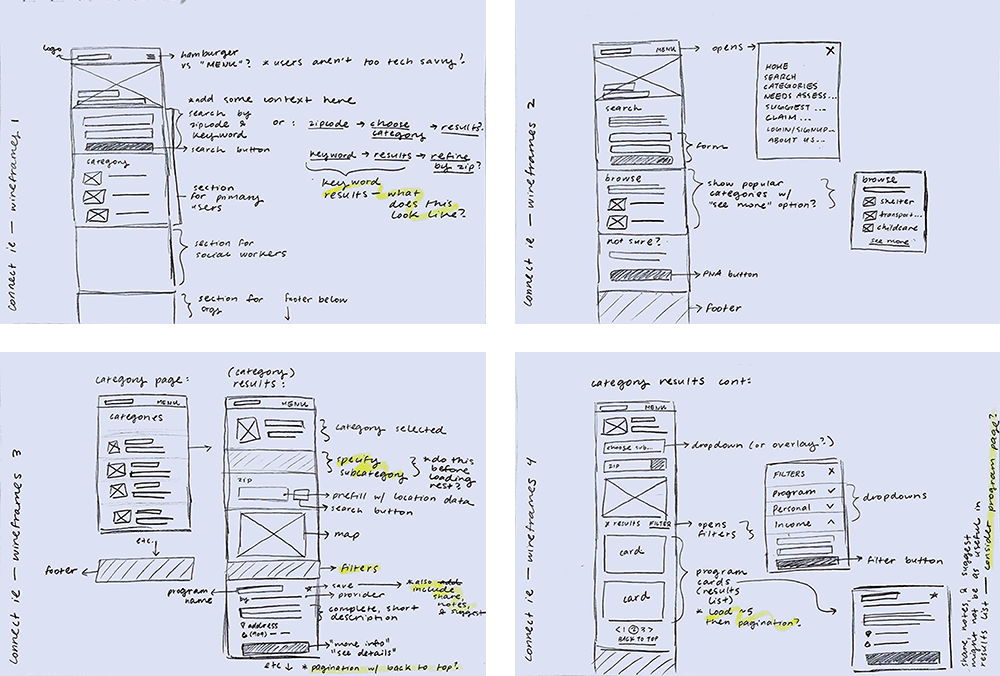 connect ie — wireframes 1
logo
hamburger
vs "MENU"? *users aren't too tech savvy?
*add some context here
search by
zipcode &
keyword
or: zipcode → choose category → results?
search button
keyword → results → refine by zip?
keyword
results — what
does this
look like?
category
section
for primary
users
section for
social workers
section for
orgs
footer below
connect ie — wireframes 2
MENU
opens
X
HOME
SEARCH
CATEGORIES
NEEDS ASSESS...
SUGGEST ...
CLAIM ...
LOGIN/SIGNUP...
ABOUT US...
search
form
browse
show popular
categories w/
"see more" option?
browse
shelter
transport...
childcare
see more
not sure?
PNA button
footer
connect ie — wireframes 3
category page:
MENU
categories
etc.
footer
(category)
results:
MENU
category selected
specify
subcategory
*do this
before
loading
rest?
zip
prefill w/ location data
search button
map
filters
program
name
save
*also add
include
share,
notes,
& suggest
by
provider
complete, short
description
address
"more info"
"see details"
etc ↓ *pagination w/ back to top?
connect ie — wireframes 4
category results cont:
MENU
choose sub...
dropdown (or overlay?)
zip
x results FILTER
opens
filters
FILTERS X
program
Personal
Income
dropdowns
filter button
card
card
program
cards
(results
list)
* load ~5
then pagination?
<1 2 3>
BACK TO TOP
share, notes, & suggest
might not be as useful in
results list — consider program page?